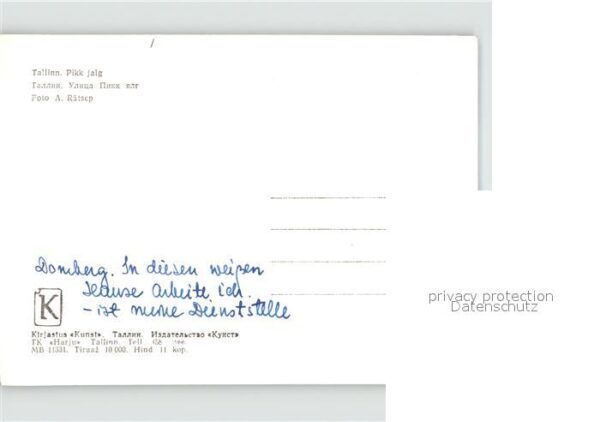 Tallinn. Pikk jalg
Таллин. Улица Пикк ялг
Foto A. Rätsep
Domberg. In diesen weißen
Hause arbeite ich.
- ist meine Dienststelle
K
privacy protection
Datenschutz
Kirjastus «Kunst», Таллин. Издательство «Кунст»
TK «Harju» Tallinn Tell
MB 11531. Tiraaž 10 000. Hind 11 kop.